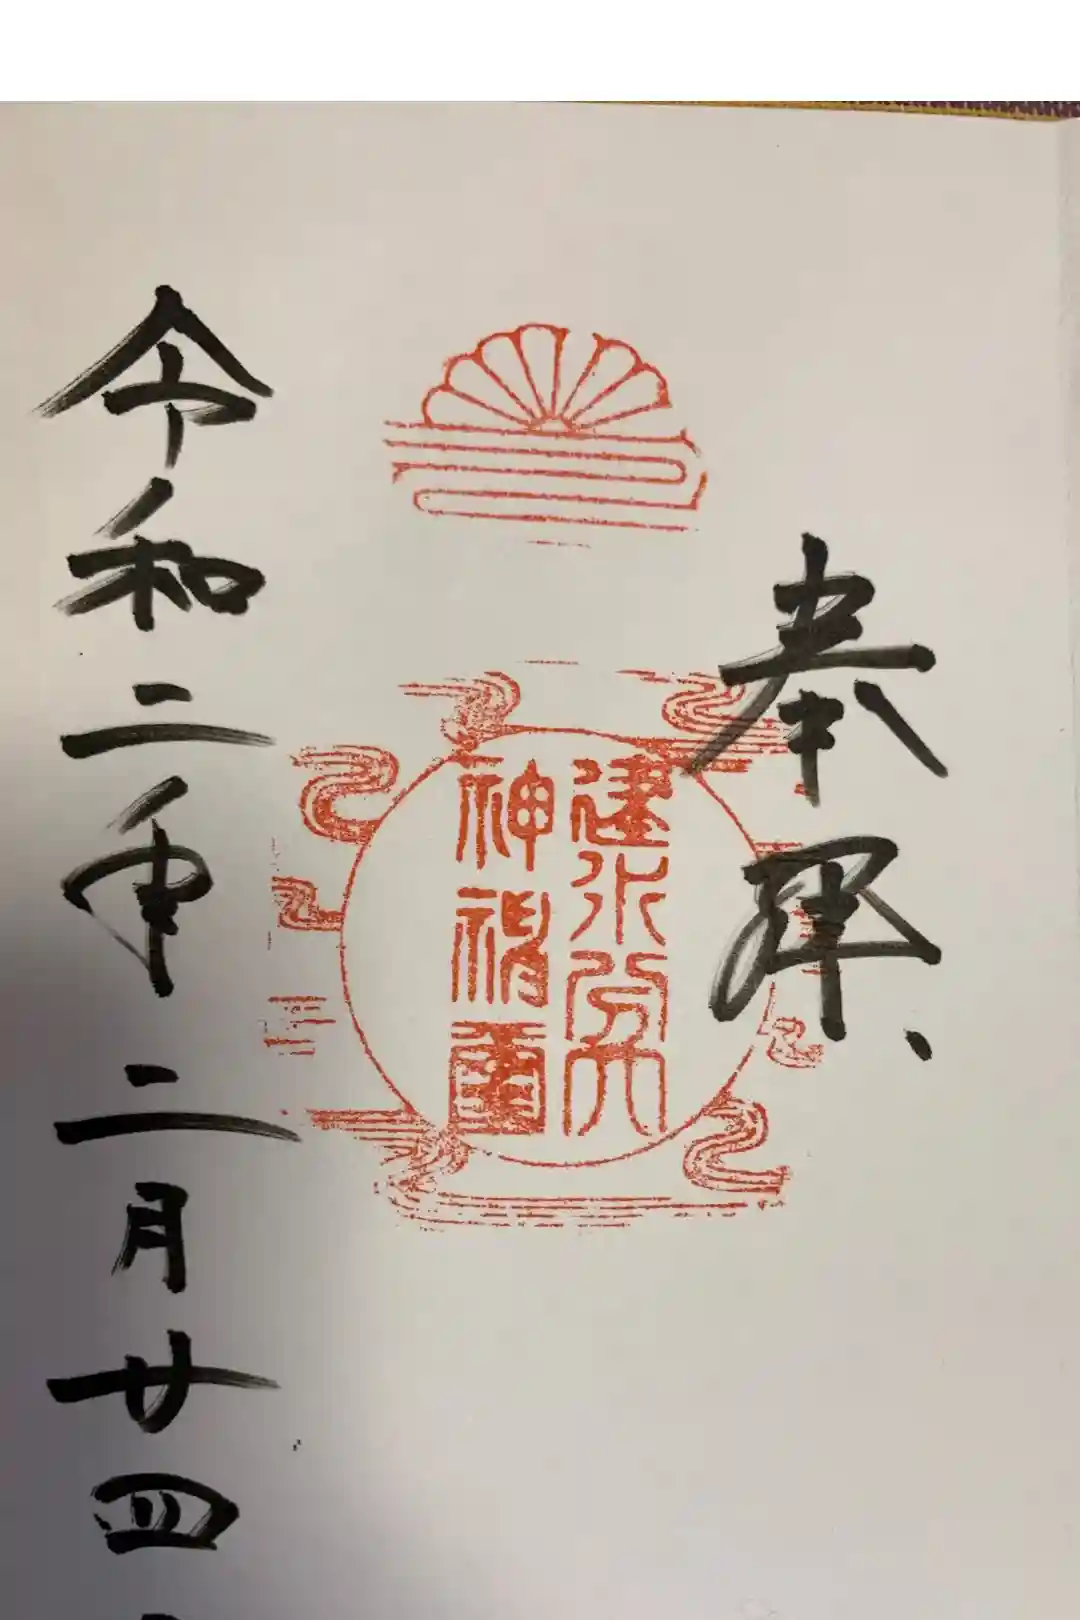 奉拝
建水分
神
令和二年二月廿四